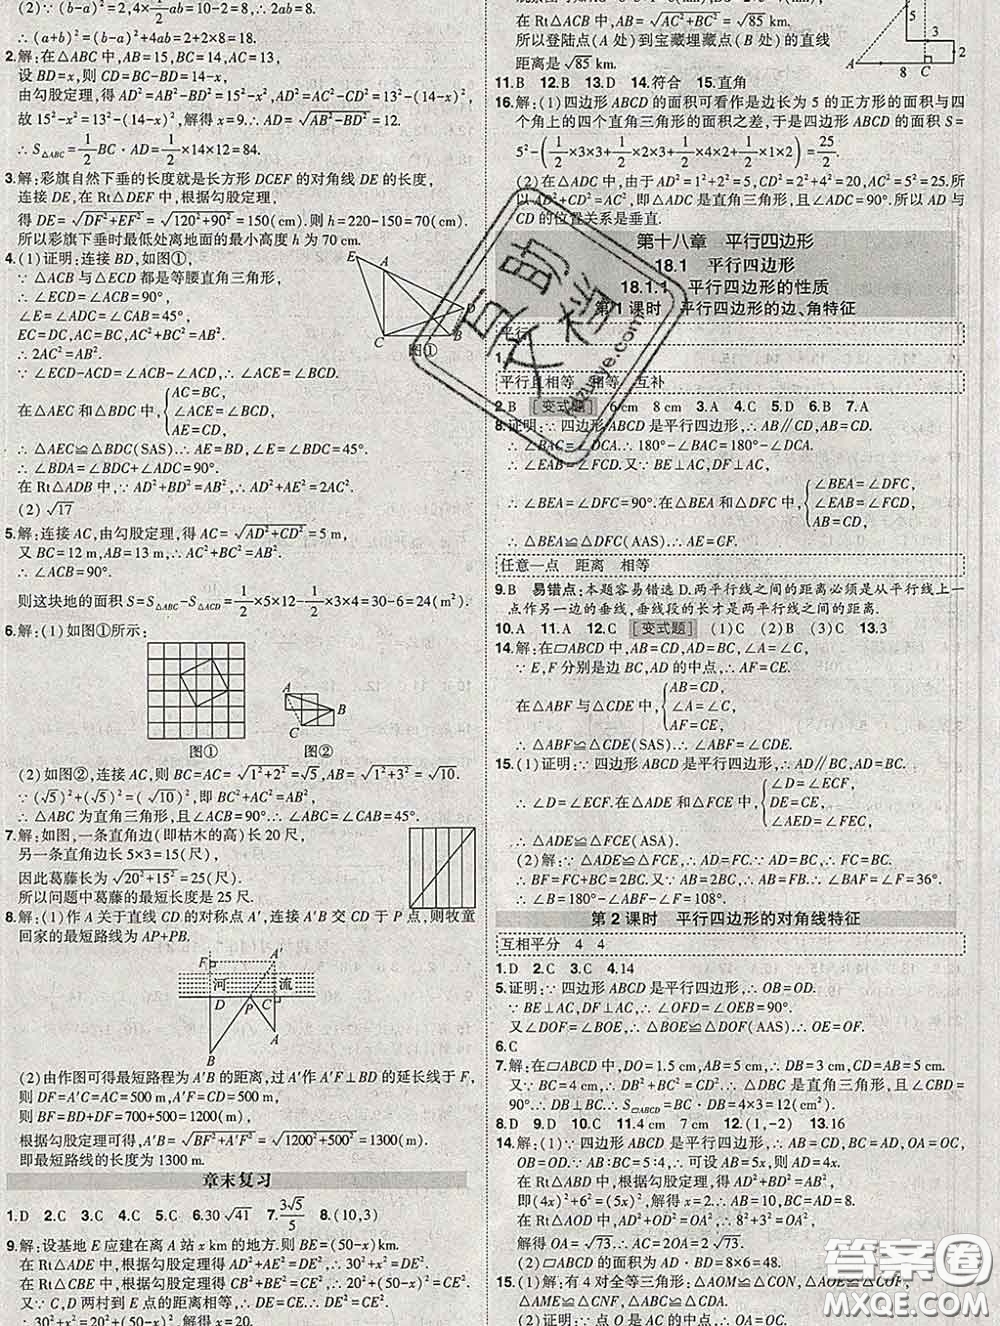 (2)∵(b-a)²=2,4×½ab=18-2=16,∴2ab=16.
∴(a+b)²=(b-a)²+4ab=2+2×8=18.
2.解:在△ABC中,AB=15,BC=14,AC=13,
设BD=x,则CD=BC-BD=14-x,
由勾股定理,得AD²=AB²-BD²=15²-x²,AD²=AC²-CD²=13²-(14-x)²,
故15²-x²=13²-(14-x)²,解得x=9.∴AD=√(AB²-BD²)=12.
∴S△ABC=½BC·AD=½×14×12=84.
3.解:彩旗自然下垂的长度就是长方形DCEF的对角线DE的长度,
连接DE,在Rt△DEF中,根据勾股定理,
得DE=√(DF²+EF²)=√(120²+90²)=150(cm).则h=220-150=70(cm).
所以彩旗下垂时最低处离地面的最小高度h为70 cm.
4.(1)证明:连接BD,如图①,
∵△ACB与△ECD都是等腰直角三角形,
∴∠ECD=∠ACB=90°,
∠E=∠ADC=∠CAB=45°,
EC=DC,AC=BC,AC²+BC²=AB².
∴2AC²=AB².
∵∠ECD-∠ACD=∠ACB-∠ACD,∴∠ACE=∠BCD.
在△AEC和△BDC中,{AC=BC,∠ACE=∠BCD,EC=CD,
∴△AEC≌△BDC(SAS).∴AE=BD,∠E=∠BDC=45°.
∴∠BDA=∠BDC+∠ADC=90°.
在Rt△ADB中,∵AD²+BD²=AB²,∴AD²+AE²=2AC².
(2)√17
图①
5.解:连接AC,由勾股定理,得AC=√(AD²+CD²)=5 m,
又BC=12 m,AB=13 m,∴AC²+BC²=AB².
∴∠ACB=90°.
则这块地的面积S=S△ABC-S△ACD=½×5×12-½×3×4=30-6=24(m²).
6.解:(1)如图①所示:
图① 图②
(2)如图②,连接AC,则BC=AC=√(1²+2²)=√5,AB=√(1²+3²)=√10.
∵(√5)²+(√5)²=(√10)²,即BC²+AC²=AB²,
∴△ABC为直角三角形,且∠ACB=90°.∴∠ABC=∠CAB=45°.
7.解:如图,一条直角边(即枯木的高)长20尺,
另一条直角边长5×3=15(尺),
因此葛藤长为√(20²+15²)=25(尺).
所以问题中葛藤的最短长度是25尺.
8.解:(1)作A关于直线CD的对称点A′,连接A′B交CD于P点,则牧童
回家的最短路线为AP+PB.
F A′ 河 流 D P C A B
(2)由作图可得最短路程为A′B的距离,过A′作A′F⊥BD的延长线于F,
则DF=A′C=AC=500 m,A′F=CD=500 m,
则BF=BD+DF=700+500=1200(m),
根据勾股定理可得,A′B=√(BF²+A′F²)=√(1200²+500²)=1300(m).
即最短路线的长度为1300 m.
章末复习
1.D 2.C 3.C 4.C 5.C 6.30√41 7.3√5/5 8.(10,3)
9.解:设基地E应建在离A站x km的地方.则BE=(50-x)km.
在Rt△ADE中,根据勾股定理得AD²+AE²=DE²,∴30²+x²=DE².
在Rt△CBE中,根据勾股定理得CB²+BE²=CE²,∴20²+(50-x)²=CE².
又∵C,D两村到E点的距离相等,∴DE=CE.∴DE²=CE².
∴30²+x²=20²+(50-x)².解得x=20.
在Rt△ACB中,AB=√(AC²+BC²)=√85 km.
所以登陆点(A处)到宝藏埋藏点(B处)的直线
距离是√85 km.
A 8 C 2
11.B 12.B 13.D 14.符合 15.直角
16.解:(1)四边形ABCD的面积可看作是边长为5的正方形的面积与四
个角上的四个直角三角形的面积之差,于是四边形ABCD的面积S=
5²-(½×3×3+½×2×3+½×4×2+½×1×2)=25/2.
(2)在△ADC中,由于AD²=1²+2²=5,CD²=20,AC²=5²=25.所
以AD²+CD²=AC²,即△ADC是直角三角形,且∠ADC=90°.所以AD与
CD的位置关系是垂直.
第十八章 平行四边形
18.1 平行四边形
18.1.1 平行四边形的性质
第1课时 平行四边形的边、角特征
平行
1.
平行且相等 相等 互补
2.B [变式题] 6 cm 8 cm 3.A 4.C 5.D 6.B 7.A
8.证明:∵四边形ABCD是平行四边形,∴AB∥CD,AB=CD.
∴∠BAC=∠DCA.∴180°-∠BAC=180°-∠DCA.
∴∠EAB=∠FCD.又∵BE⊥AC,DF⊥AC,
∴∠BEA=∠DFC=90°.在△BEA和△DFC中,{∠BEA=∠DFC,∠EAB=∠FCD,AB=CD,
∴△BEA≌△DFC(AAS).∴AE=CF.
任意一点 距离 相等
9.B 易错点:本题容易错选D.两平行线之间的距离必须是从平行线上一
点作另一边的垂线,垂线段的长才是两平行线之间的距离.
10.A 11.A 12.C [变式题] (1)C (2)B (3)C 13.3
14.解:在▱ABCD中,AB=CD,AD=BC,∠A=∠C,
∵E,F分别是边BC,AD的中点,∴AF=CE.
在△ABF与△CDE中,{AB=CD,∠A=∠C,AF=CE,
∴△ABF≌△CDE(SAS).∴∠ABF=∠CDE.
15.(1)证明:∵四边形ABCD是平行四边形,∴AD∥BC,AD=BC.
∴∠D=∠ECF.在△ADE和△FCE中,{∠D=∠ECF,DE=CE,∠AED=∠FEC,
∴△ADE≌△FCE(ASA).
(2)解:∵△ADE≌△FCE,∴AD=FC.∵AD=BC,∴AD=FC=BC.
∴BF=FC+BC=2BC.又∵AB=2BC,∴AB=FB.∴∠BAF=∠F=36°.
∴∠B=180°-∠BAF-∠F=108°.
第2课时 平行四边形的对角线特征
互相平分 4 4
1.D 2.C 3.C 4.14
5.证明:∵四边形ABCD是平行四边形,∴OB=OD.
∵BE⊥AC,DF⊥AC,∴∠OFD=∠OEB=90°.
又∠DOF=∠BOE,∴△BOE≌△DOF(AAS).∴OE=OF.
6.C
7.解:在▱ABCD中,DO=1.5 cm,AB=5 cm,∴DB=3 cm,DC=5 cm.
又∵BC=4 cm,∴DB²+BC²=CD².∴△DBC是直角三角形,且∠CBD=
90°.∴DB⊥BC.∴S▱ABCD=DB·BC=4×3=12(cm²).
8.D 9.D 10.C 11.4 cm 7 cm 12.(1,-2) 13.16
14.解:(1)∵四边形ABCD是平行四边形,∴AB=CD,BC=AD,OA=OC,
OB=OD.∵AB:BC=5:4,∴可设AB=5x,则AD=4x.
在Rt△ABD中,根据勾股定理,得AD²+BD²=AB²,
即(4x)²+6²=(5x)²,解得x=2.∴AB=10,BC=AD=8.
在Rt△AOD中,AD²+OD²=OA²,∴8²+3²=OA².
解得OA=√73.∴AC=2OA=2√73.
(2)▱ABCD的面积为AD·BD=8×6=48.
15.(1)解:有4对全等三角形:△AOM≌△CON,△AOE≌△COF,
△AME≌△CNF,△ABC≌△CDA.
(2)证明:∵OA=OC,∠1=∠2,OE=OF,
互助文档
Hzuoye.com
答案圈
MXQE.COM